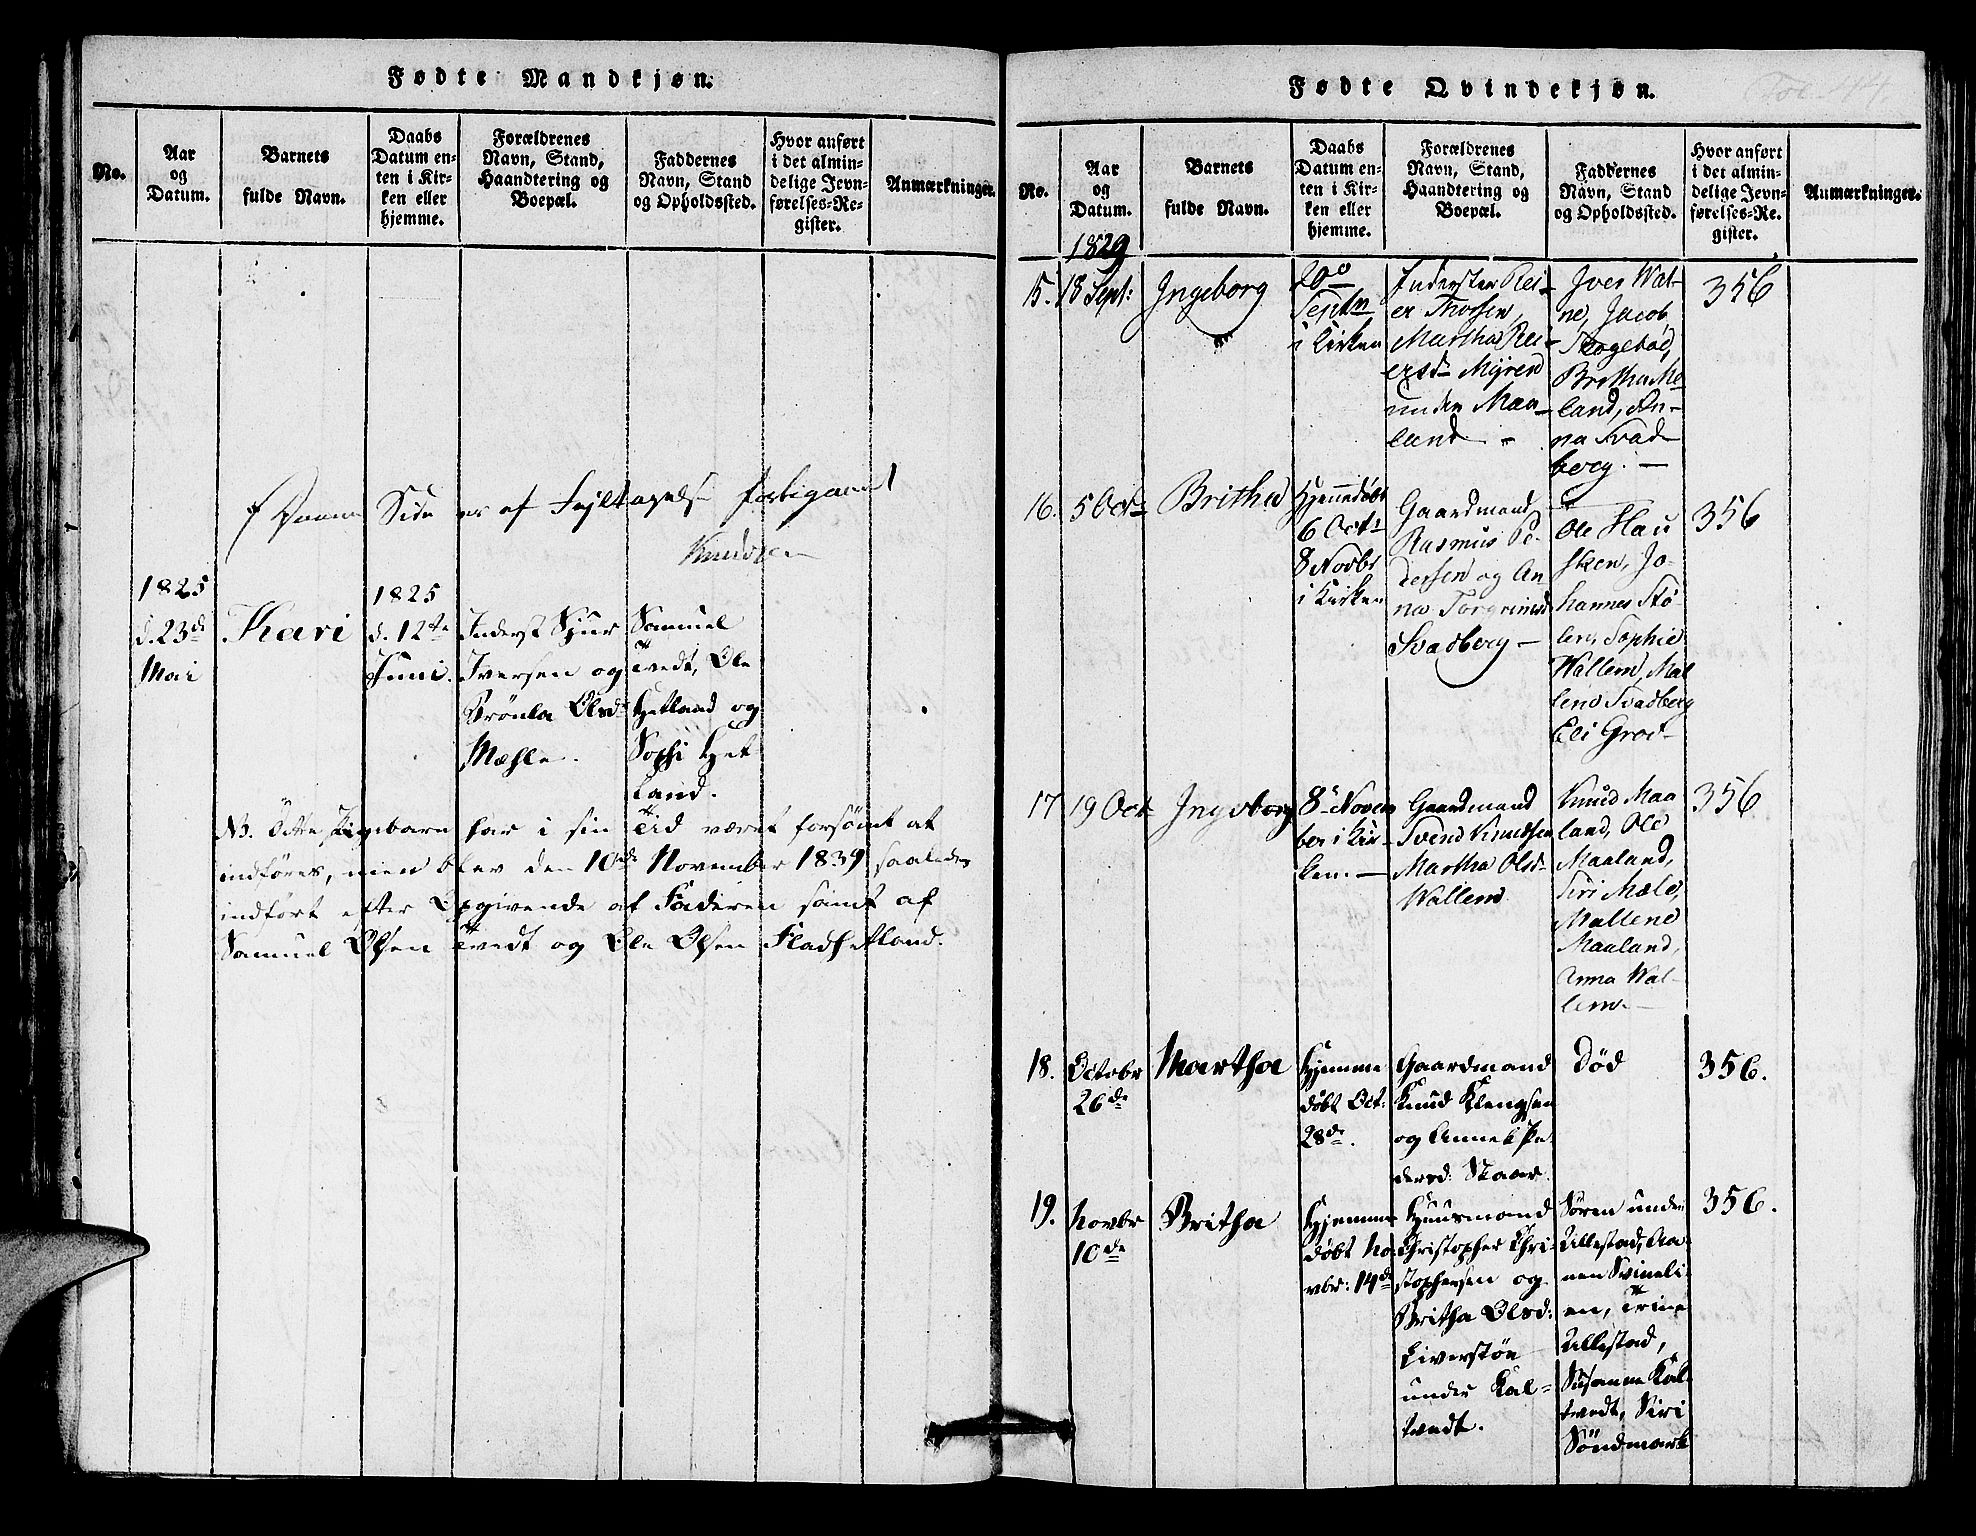 Fødte Mandkjøn.
No.
Aar
og
Datum.
Barnets
fulde Navn.
Daabs
Datum en-
ten i Kir-
ken eller
hjemme.
Forældrenes
Navn, Stand,
Haandtering og
Boepæl.
Faddernes
Navn, Stand
og Opholdssted.
Hvor anført
i det almin-
delige Jevn-
førelses-Re-
gister.
Anmærkninger.
Side er af Fejltagelse forbigaaet
Knudsen
1825
d. 23de
Mai
Kari
1825
d. 12te
Juni.
Inderst Sjur
Iversen og
Olsd:
Mæhle.
Samuel
Tvedt, Ole
Hetland og
Sophi Het
land.
NB. Dette Pigebarn har i sin Tid været forsømt at
indføres, men blev den 10de November 1839 saaledes
indført efter Opgivende af Faderen samt af
Samuel Olsen Tvedt og Ole Olsen Fladhetland.
Fødte Qvindekjøn.
Fol. 44.
No.
Aar
og
Datum.
1829
Barnets
fulde Navn.
Daabs
Datum en-
ten i Kir-
ken eller
hjemme.
Forældrenes
Navn, Stand,
Haandtering og
Boepæl.
Faddernes
Navn, Stand
og Opholdssted.
Hvor anført
i det almin-
delige Jevn-
førelses-Re-
gister.
Anmærkninger.
15.
18 Sept:
Ingeborg
20
Septbr
i Kirken
Inderster Rei-
er Thorsen,
Martha Rei-
ersdr Myren
under Maa-
land -
Iver Wal-
ne, Jacob
Skogebøe,
Britha Me-
land, An-
na Svad-
berg. -
356
16.
5 Octr
Britha
Hjemmedøbt
6 Octr
8 Novbr
i Kirken
Gaardmand
Rasmus Pe-
dersen og An
na Torgrimsd
Svadberg -
Ole Hau
sken, Jo-
hannes Stø
len, Sophie
Wallem, Mal
lene Svadberg
Eli Grod-
356
17
19 Oct
Ingeborg
8 Novem
ber i Kir-
ken. -
Gaardmand
Svend Knudsen
Martha Olsd-
Wallem
Knud Maa
land, Ole
Maaland,
Siri Mæle,
Mallene
Maaland,
Anna Wal-
lem. -
356
18.
Octobr
26de
Martha
Hjemme
døbt Oct:
28de.
Gaardmand
Knud Klengsen
og Anne Pe
dersd: Skaar.
Død
356.
19.
Novbr
10de
Britha
Hjemme
døbt No
vbr: 14de
Huusmand
Christopher Chri-
stophersen og
Britha Olsd:
Liverstøe
under Kal-
tvedt.
Søren under
Ullestad, Aa-
nen Svineli-
en, Trine
Ullestad,
Susanne Kal
tvedt, Siri
Söndmark
356.